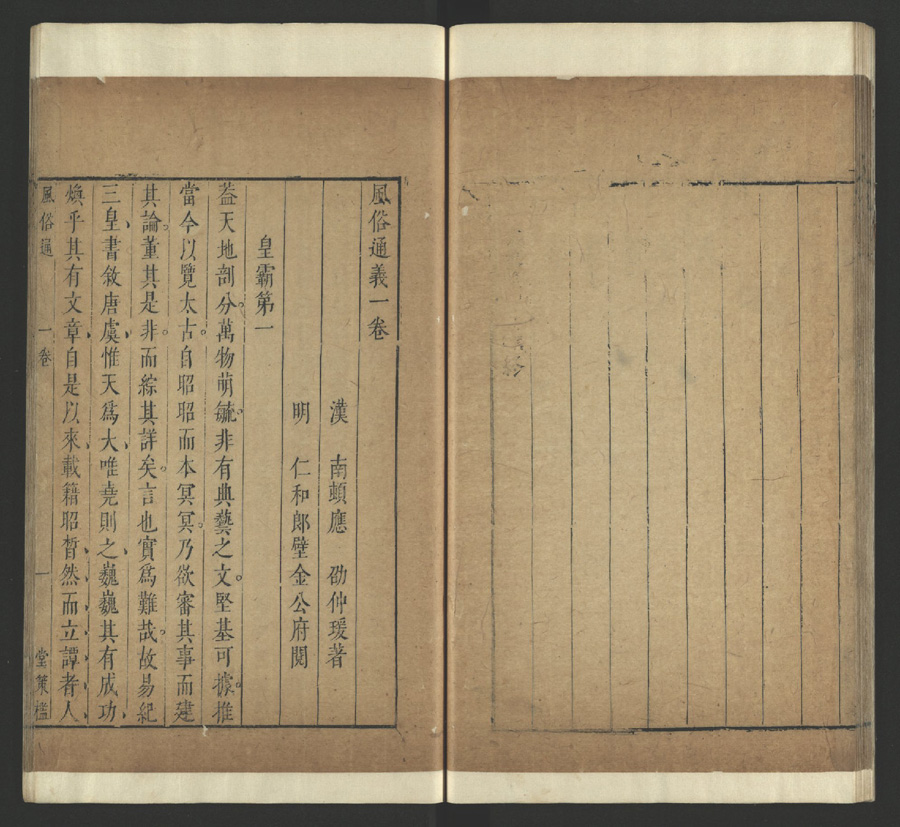 風俗通義一卷
漢 南頓應 劭仲瑗著
明 仁和郎壁金公府閱
皇霸第一
葢天地剖分。萬物萌毓。非有典藝之文。堅基可據。推
當今以覽太古。自昭昭而本冥冥。乃欲審其事而建
其論。董其是非。而綜其詳矣。言也實爲難哉。故易紀
三皇、書敘唐虞、惟天爲大、唯堯則之、巍巍其有成功、
煥乎其有文章、自是以來、載籍昭晳、然而立譚者人
風俗通 一卷 一 堂策檻